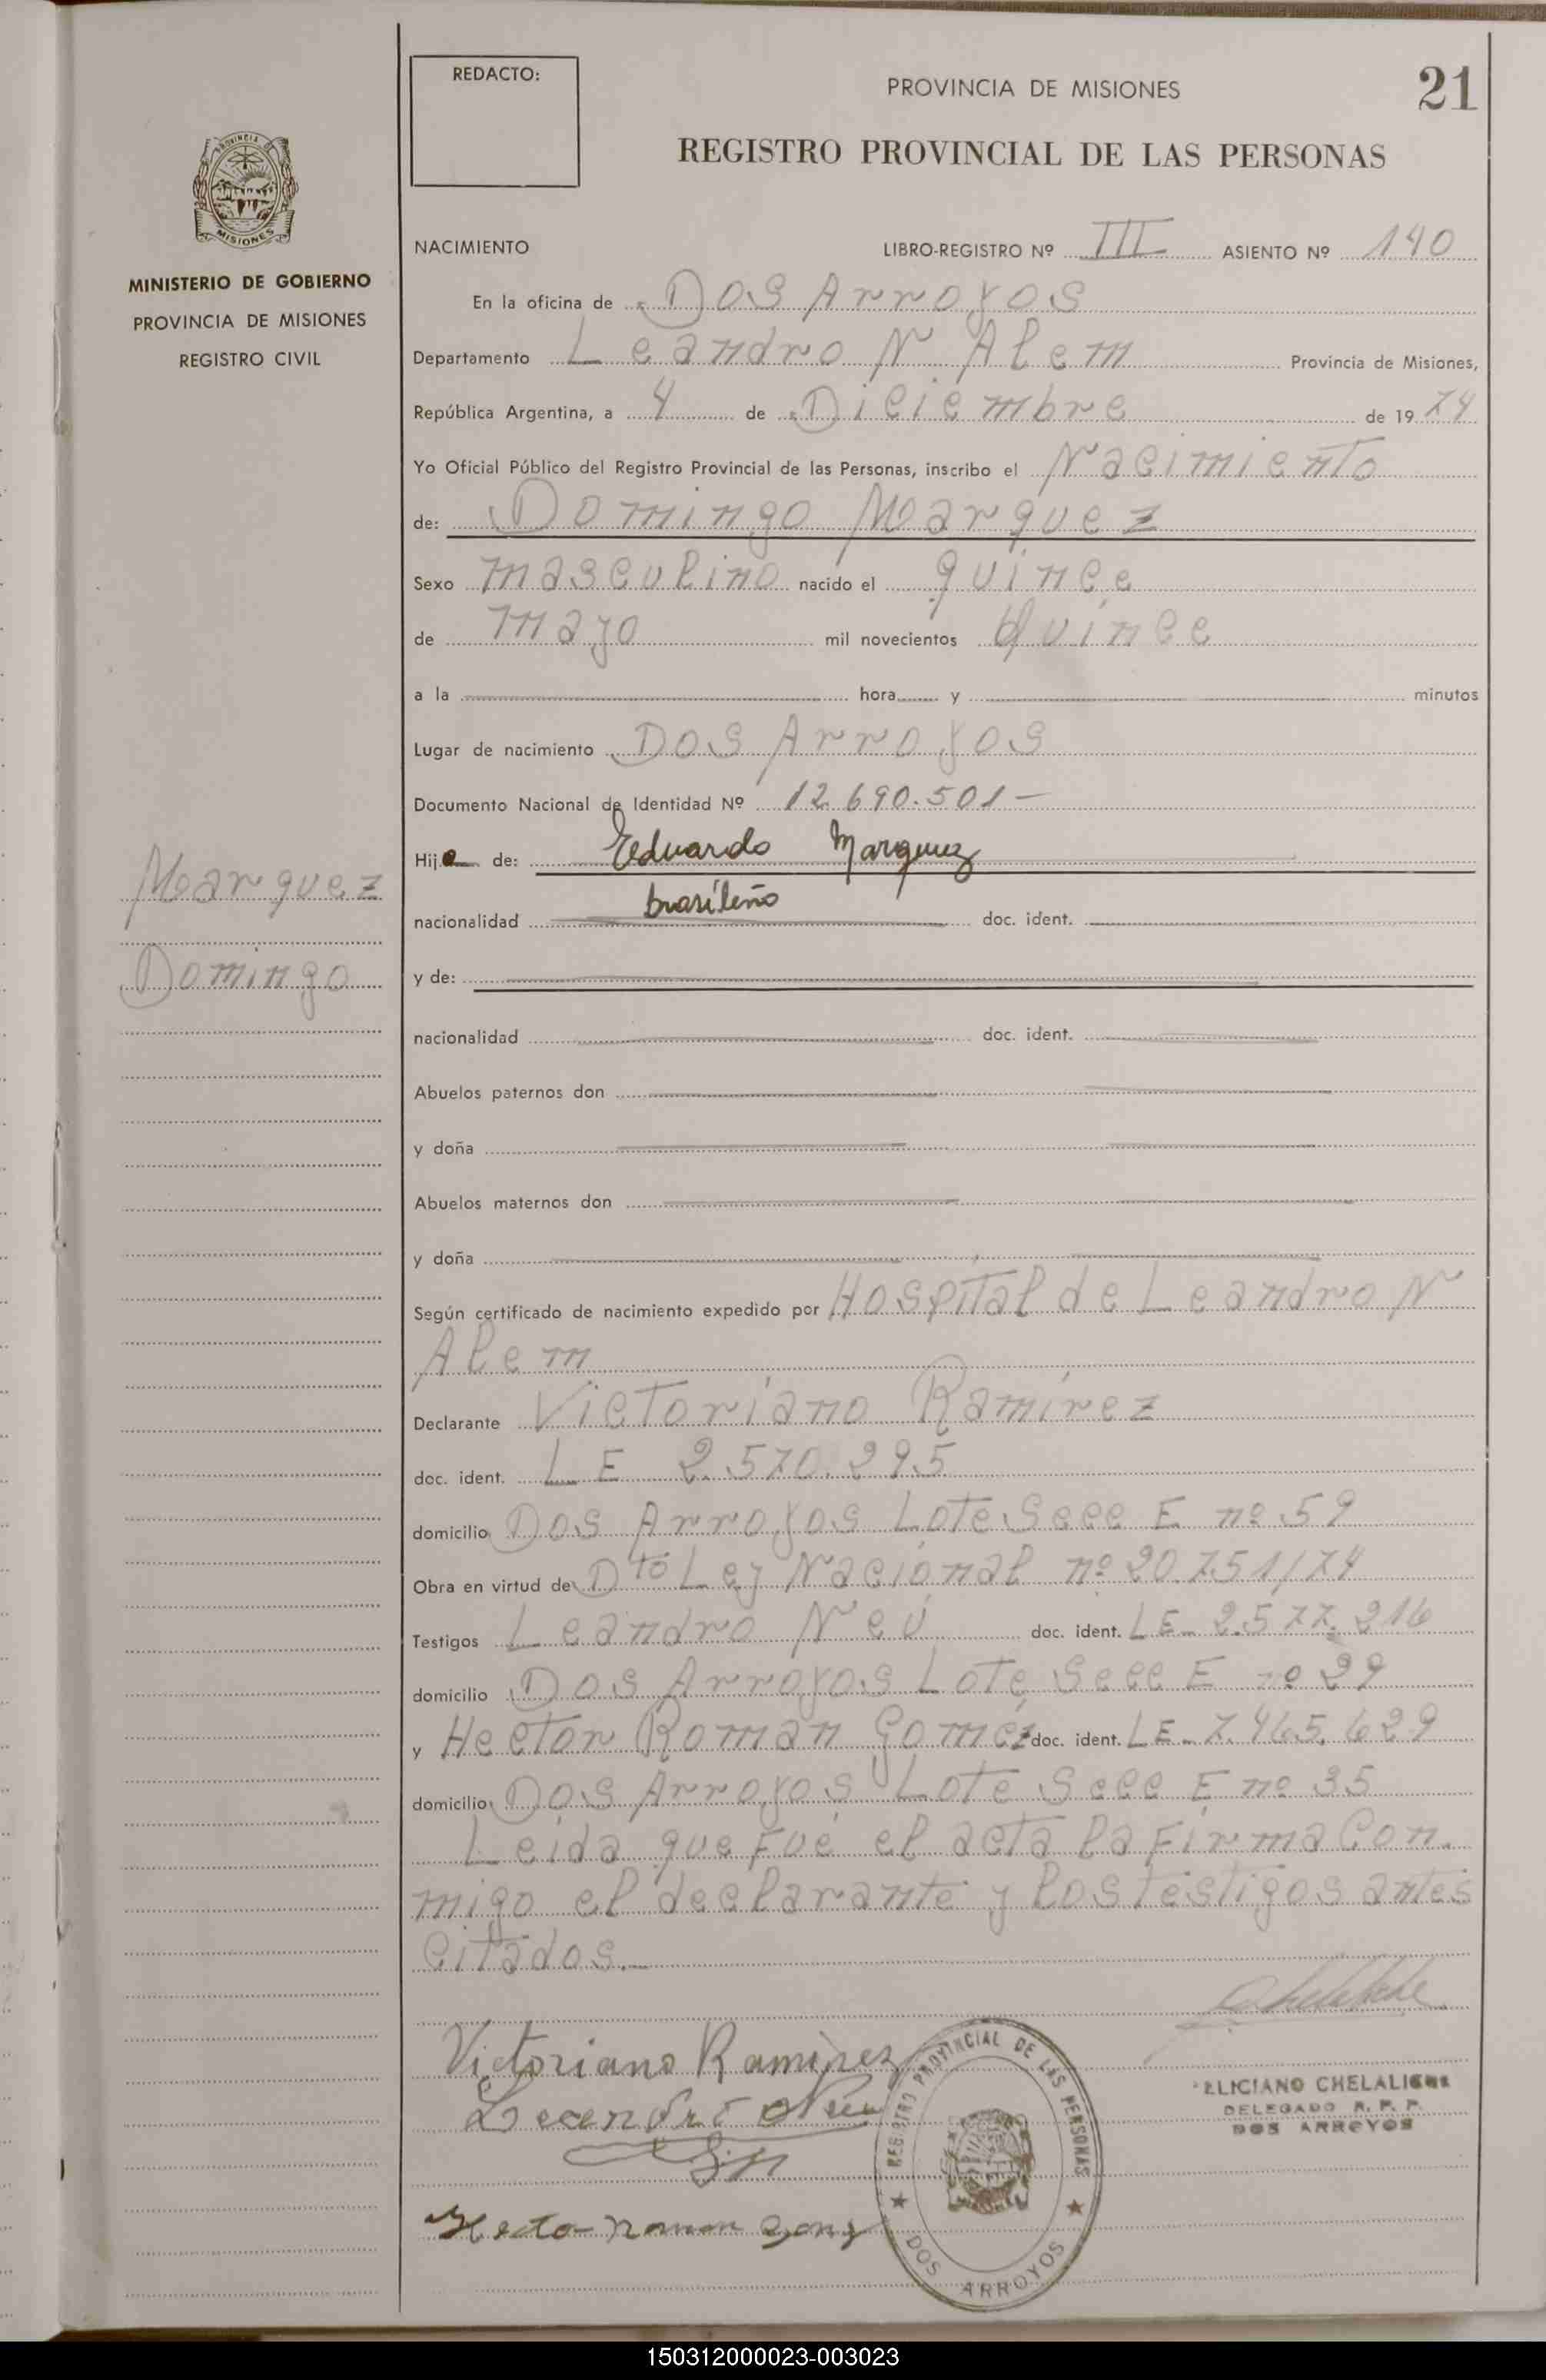 REDACTO:
PROVINCIA DE MISIONES
21
REGISTRO PROVINCIAL DE LAS PERSONAS
PROVINCIA DE
MISIONES
MINISTERIO DE GOBIERNO
PROVINCIA DE MISIONES
REGISTRO CIVIL
NACIMIENTO LIBRO-REGISTRO Nº III ASIENTO Nº 140
En la oficina de Dos Arroyos
Departamento Leandro N Alem Provincia de Misiones,
República Argentina, a 4 de Diciembre de 1974
Yo Oficial Público del Registro Provincial de las Personas, inscribo el Nacimiento
de: Domingo Marquez
Sexo masculino nacido el quince
de mayo mil novecientos quince
a la hora y minutos
Lugar de nacimiento Dos Arroyos
Documento Nacional de Identidad Nº 12.690.501-
Hijo de: Eduardo Marquez
nacionalidad brasileño doc. ident.
y de:
nacionalidad doc. ident.
Abuelos paternos don
y doña
Abuelos maternos don
y doña
Marquez
Domingo
Según certificado de nacimiento expedido por Hospital de Leandro N
Alem
Declarante Victoriano Ramírez
doc. ident. L E 2.570.295
domicilio Dos Arroyos Lote Secc E nº 59
Obra en virtud de Dto Ley Nacional nº 20.751/74
Testigos Leandro Neú doc. ident. LE- 2.577.216
domicilio Dos Arroyos Lote Secc E nº 29
y Hector Roman Goméz doc. ident. LE- 7.465.629
domicilio Dos Arroyos Lote Secc E nº 35
Leida que fué el acta la firma con
migo el declarante y los testigos antes
citados.-
Victoriano Ramirez
Hector Roman
REGISTRO PROVINCIAL DE LAS PERSONAS
DOS ARROYOS
FELICIANO CHELALICHE
DELEGADO R. P. P.
DOS ARROYOS
150312000023-003023